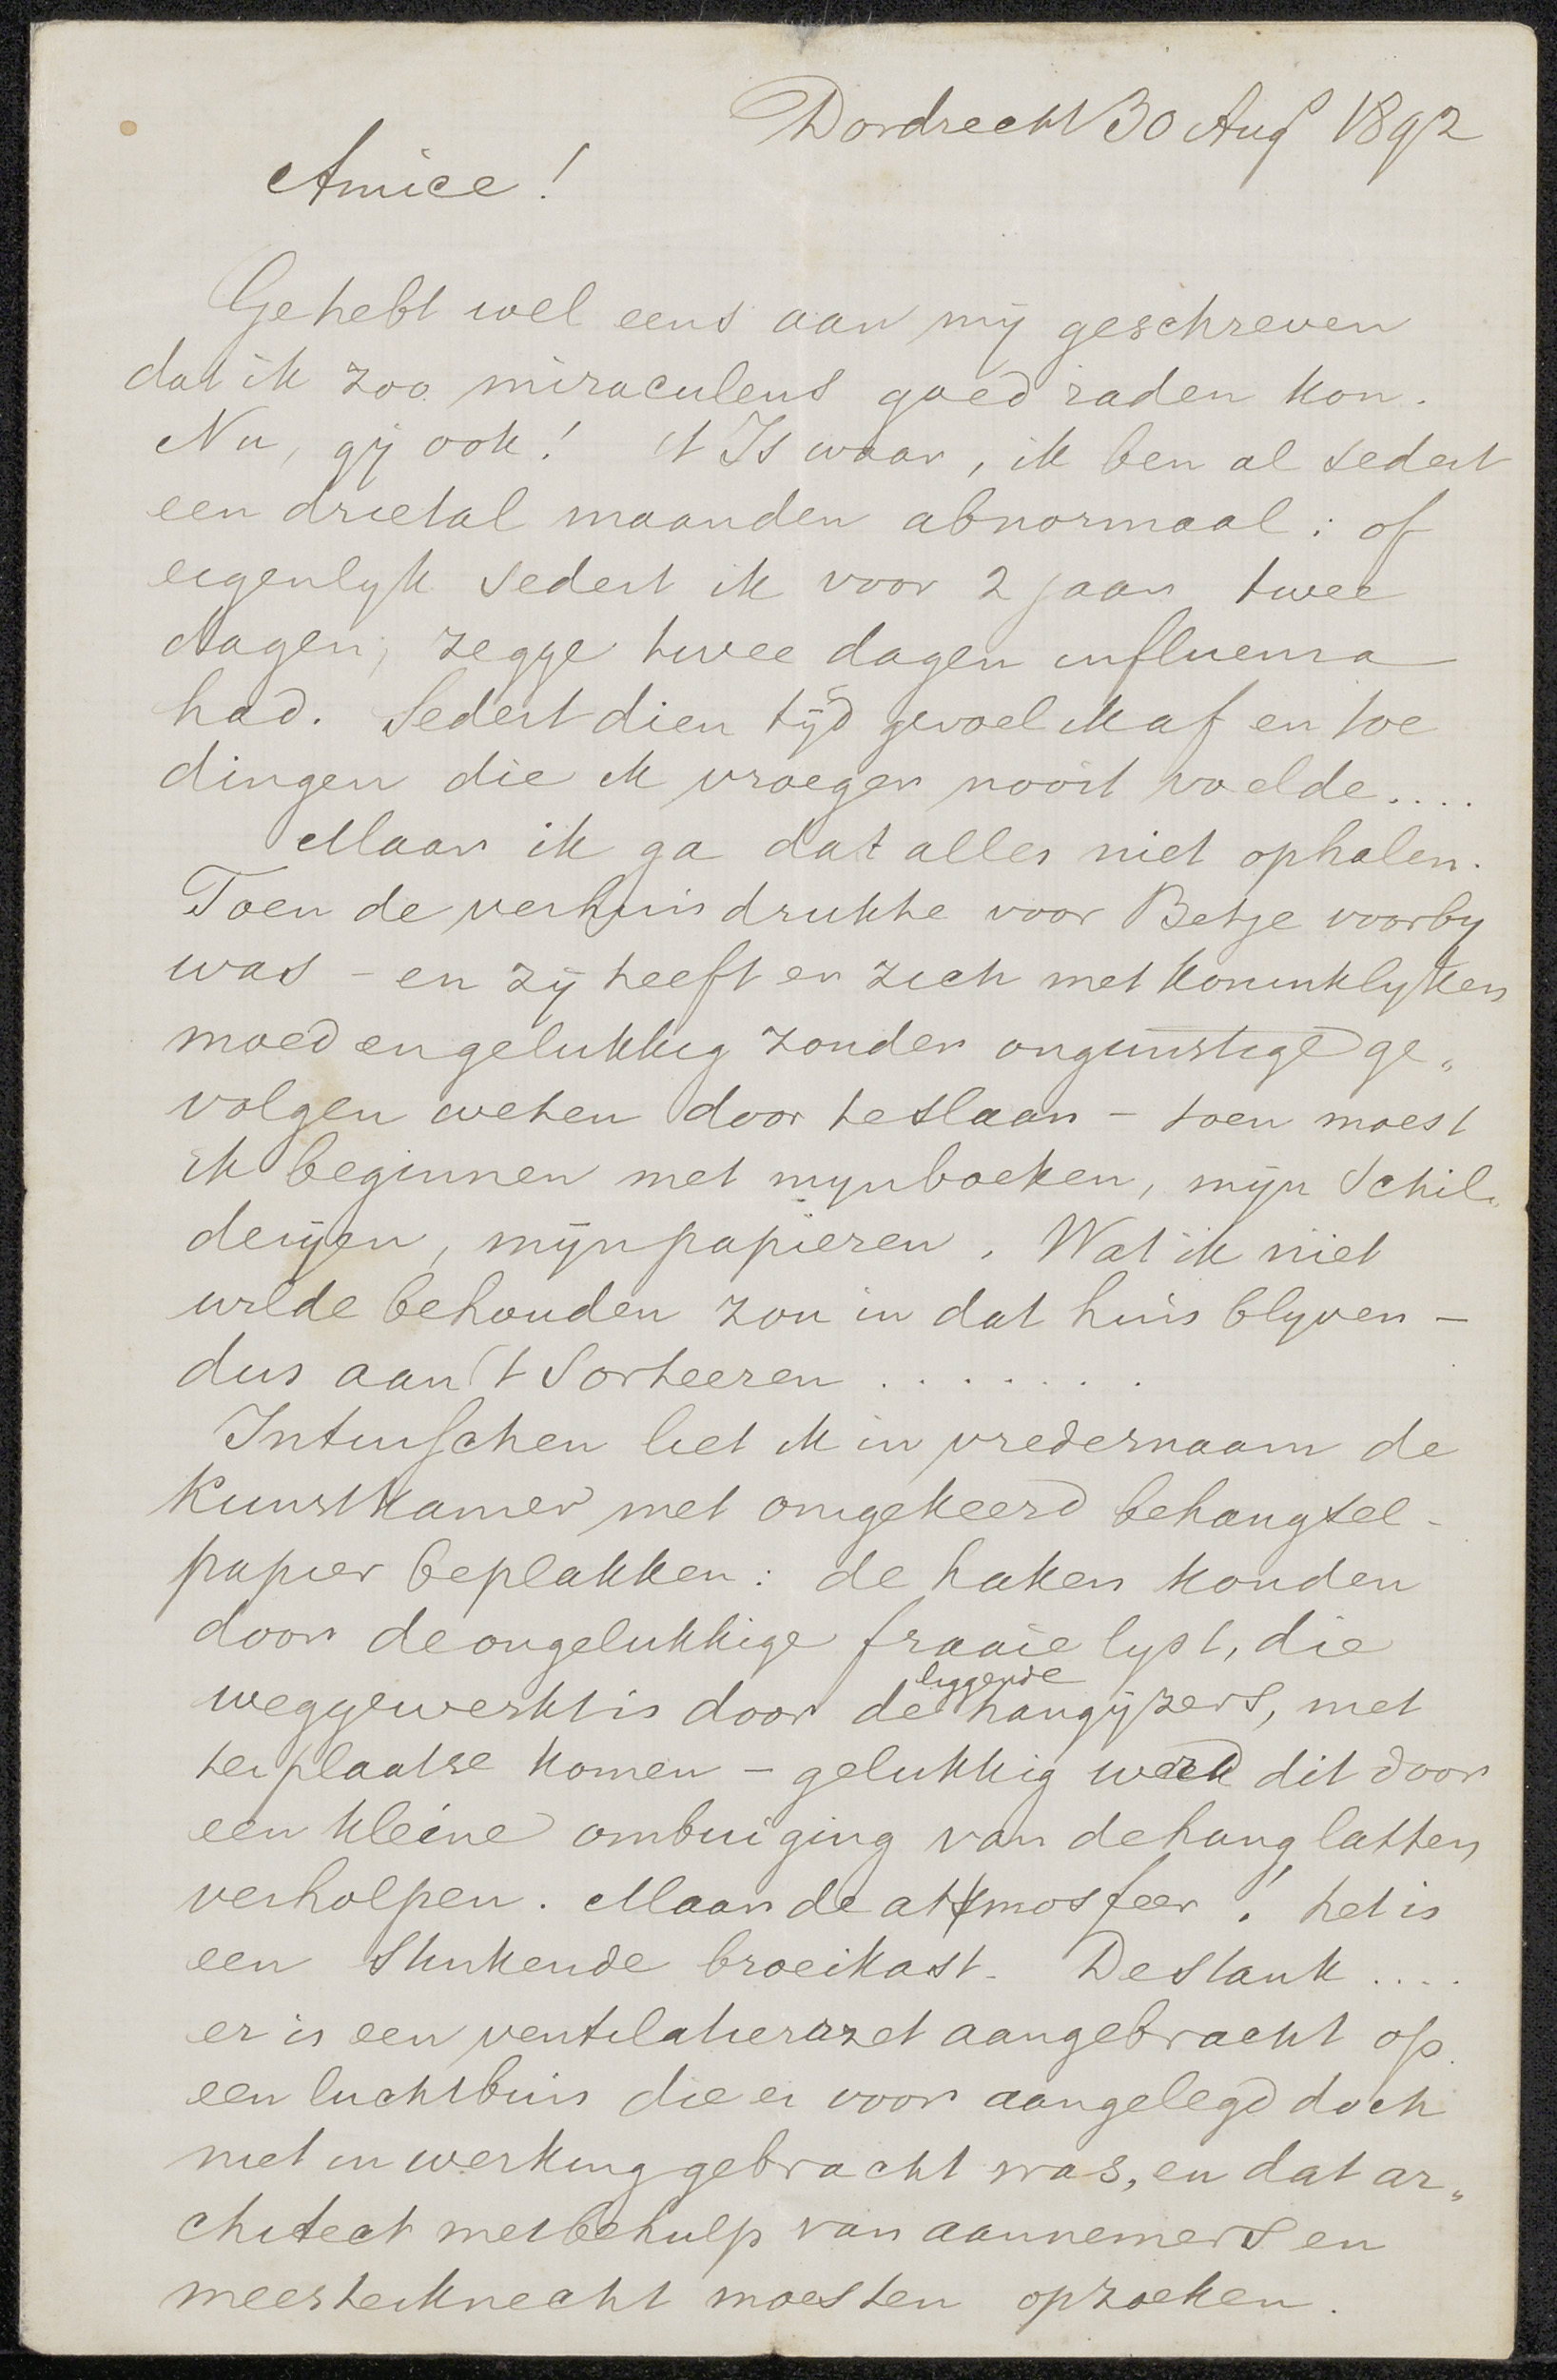 Dordrecht 30 Aug 1892
Amice!
Ge hebt wel eens aan mij geschreven
dat ik zoo miraculeus goed raden kon.
Nu, gij ook! 't Is waar, ik ben al sedert
een drietal maanden abnormaal: of
eigenlyk sedert ik voor 2 jaar twee
dagen, zegge twee dagen influenza
had. Sedert dien tijd gevoel ik af en toe
dingen die ik vroeger nooit voelde....
Maar ik ga dat alles niet ophalen.
Toen de verhuisdrukte voor Betje voorby
was - en zij heeft er zich met koninklyken
moed en gelukkig zonder ongunstige ge„
volgen weten door te slaan - toen moest
ik beginnen met myn boeken, mijn schil„
derijen, mijn papieren. Wat ik niet
wilde behouden zou in dat huis blyven -
dus aan 't sorteeren ........
Intusschen liet ik in vredesnaam de
Kunstkamer met omgekeerd behangsel-
papier beplakken: de haken konden
door de ongelukkige fraaie lyst, die
weggewerkt is door de liggende hangijzers, niet
ter plaatse komen - gelukkig werd dit door
een kleine ombuiging van de hanglatten
verholpen. Maar de atmosfeer! het is
een stinkende broeikast. De stank ....
er is een ventilatierozet aangebracht op
een luchtbuis die er voor aangelegd doch
niet in werking gebracht was, en dat ar„
chitect met behulp van aannemers en
meesterknecht moesten opzoeken.